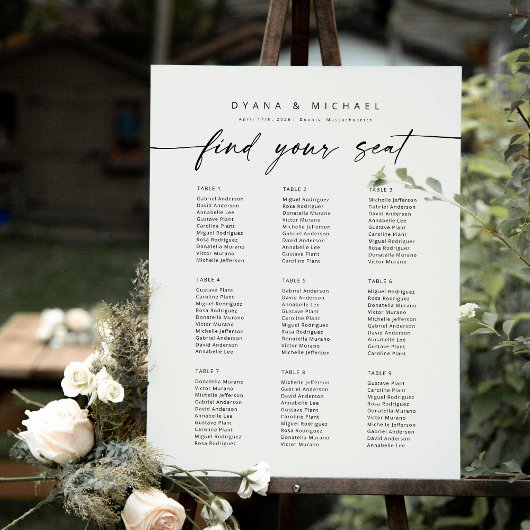 DYANA & MICHAEL
April 17th, 2026 | Dennis, Massachusetts
find your seat
TABLE 1
Gabriel Anderson
David Anderson
Annabelle Lee
Gustave Plant
Caroline Plant
Miguel Rodriguez
Rosa Rodriguez
Donatella Murano
Victor Murano
Michelle Jefferson
TABLE 2
Miguel Rodriguez
Rosa Rodriguez
Donatella Murano
Victor Murano
Michelle Jefferson
Gabriel Anderson
David Anderson
Annabelle Lee
Gustave Plant
Caroline Plant
TABLE 3
Michelle Jefferson
Gabriel Anderson
David Anderson
Annabelle Lee
Gustave Plant
Caroline Plant
Miguel Rodriguez
Rosa Rodriguez
Donatella Murano
Victor Murano
TABLE 4
Gustave Plant
Caroline Plant
Miguel Rodriguez
Rosa Rodriguez
Donatella Murano
Victor Murano
Michelle Jefferson
Gabriel Anderson
David Anderson
Annabelle Lee
TABLE 5
Gabriel Anderson
David Anderson
Annabelle Lee
Gustave Plant
Caroline Plant
Miguel Rodriguez
Rosa Rodriguez
Donatella Murano
Victor Murano
Michelle Jefferson
TABLE 6
Miguel Rodriguez
Rosa Rodriguez
Donatella Murano
Victor Murano
Michelle Jefferson
Gabriel Anderson
David Anderson
Annabelle Lee
Gustave Plant
Caroline Plant
TABLE 7
Donatella Murano
Victor Murano
Michelle Jefferson
Gabriel Anderson
David Anderson
Annabelle Lee
Gustave Plant
Caroline Plant
Miguel Rodriguez
Rosa Rodriguez
TABLE 8
Michelle Jefferson
Gabriel Anderson
David Anderson
Annabelle Lee
Gustave Plant
Caroline Plant
Miguel Rodriguez
Rosa Rodriguez
Donatella Murano
Victor Murano
TABLE 9
Gustave Plant
Caroline Plant
Miguel Rodriguez
Rosa Rodriguez
Donatella Murano
Victor Murano
Michelle Jefferson
Gabriel Anderson
David Anderson
Annabelle Lee